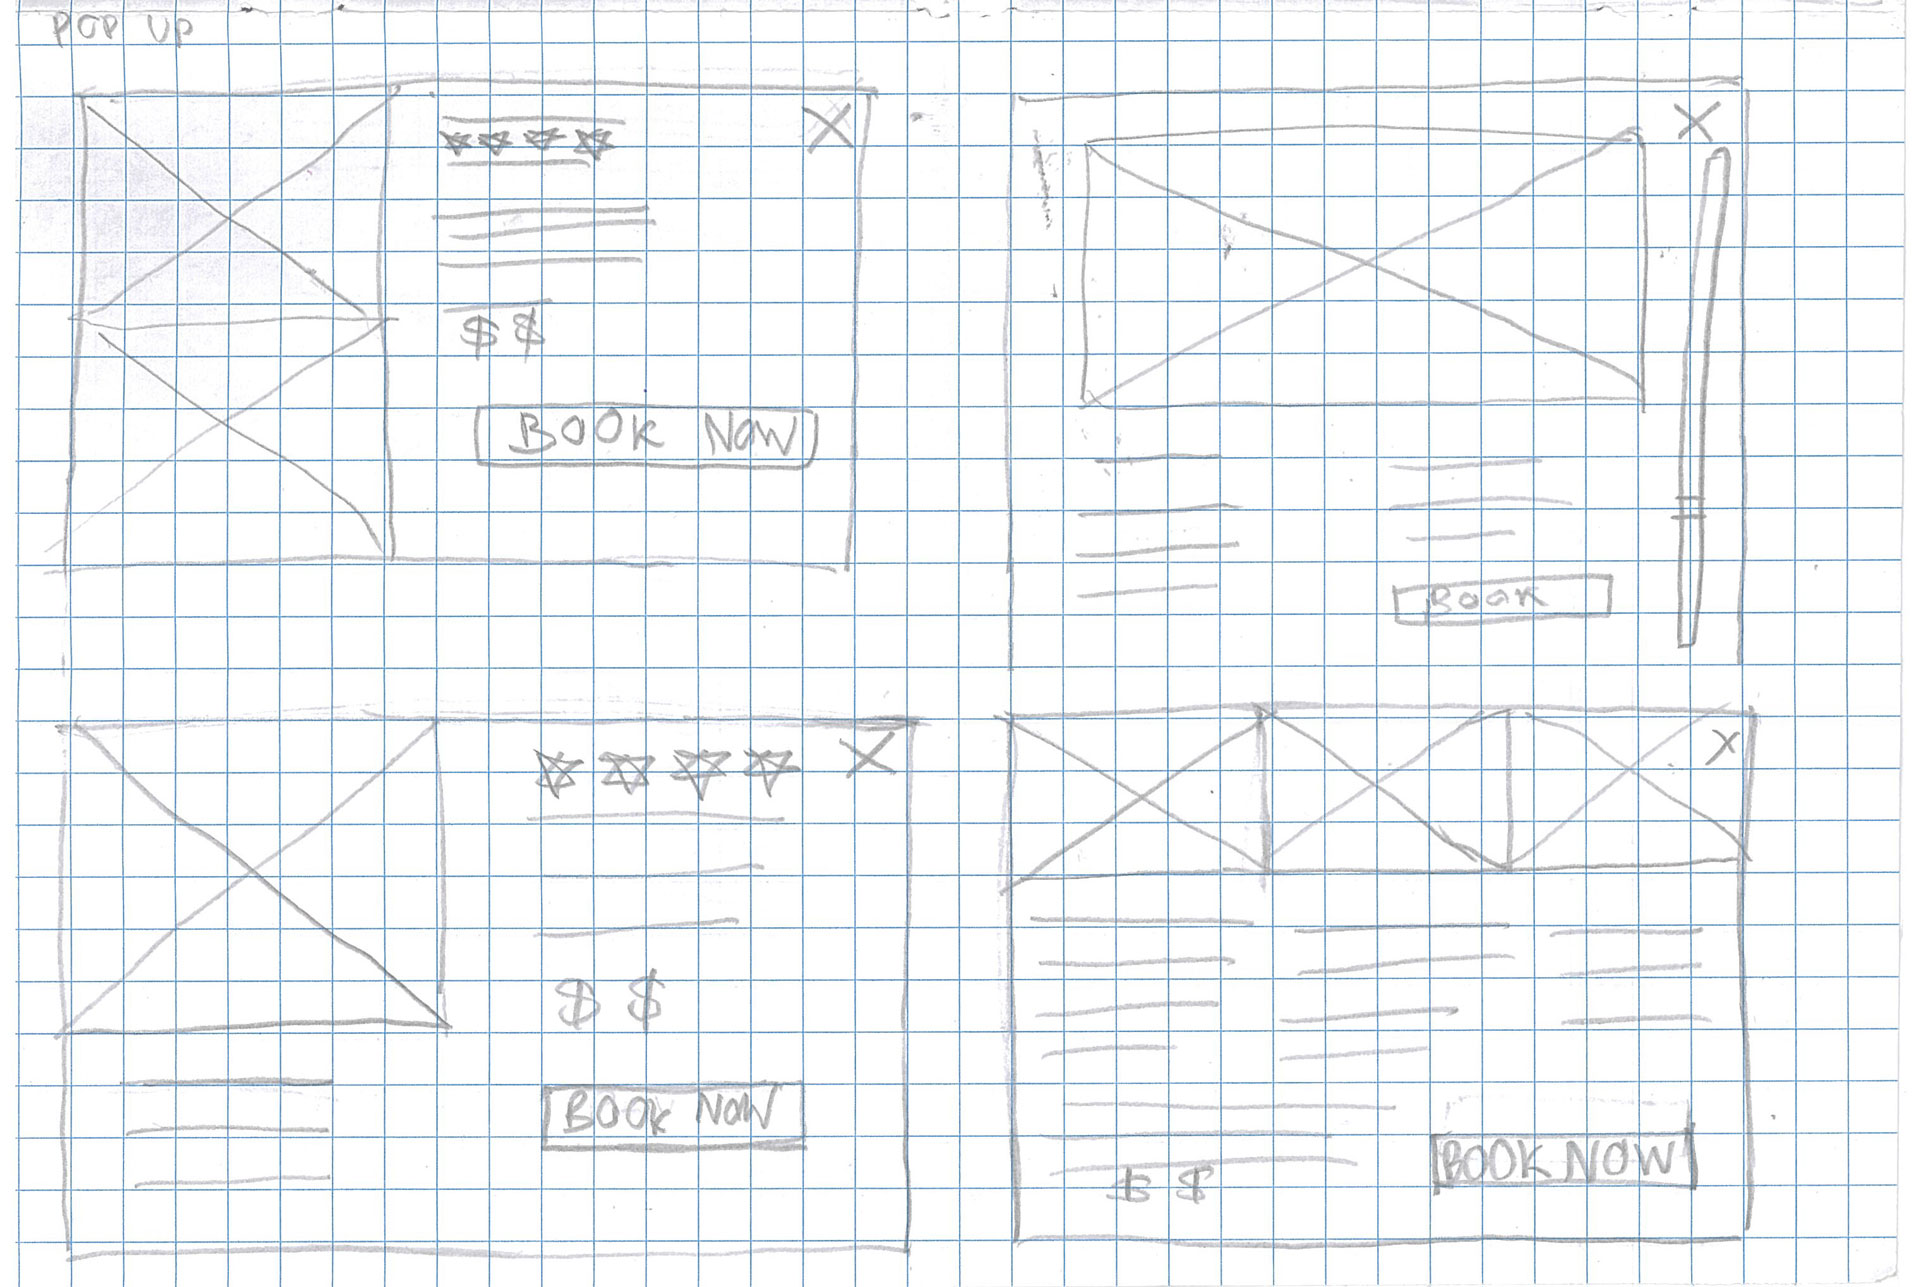 POP UP
X
$$
BOOK NOW
X
BOOK
X
$ $
BOOK NOW
X
$ $
BOOK NOW